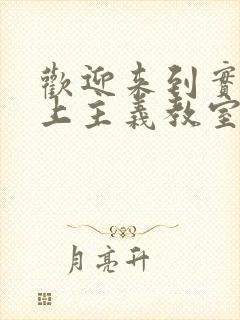 歡迎来到實
上主義教室
月亮升